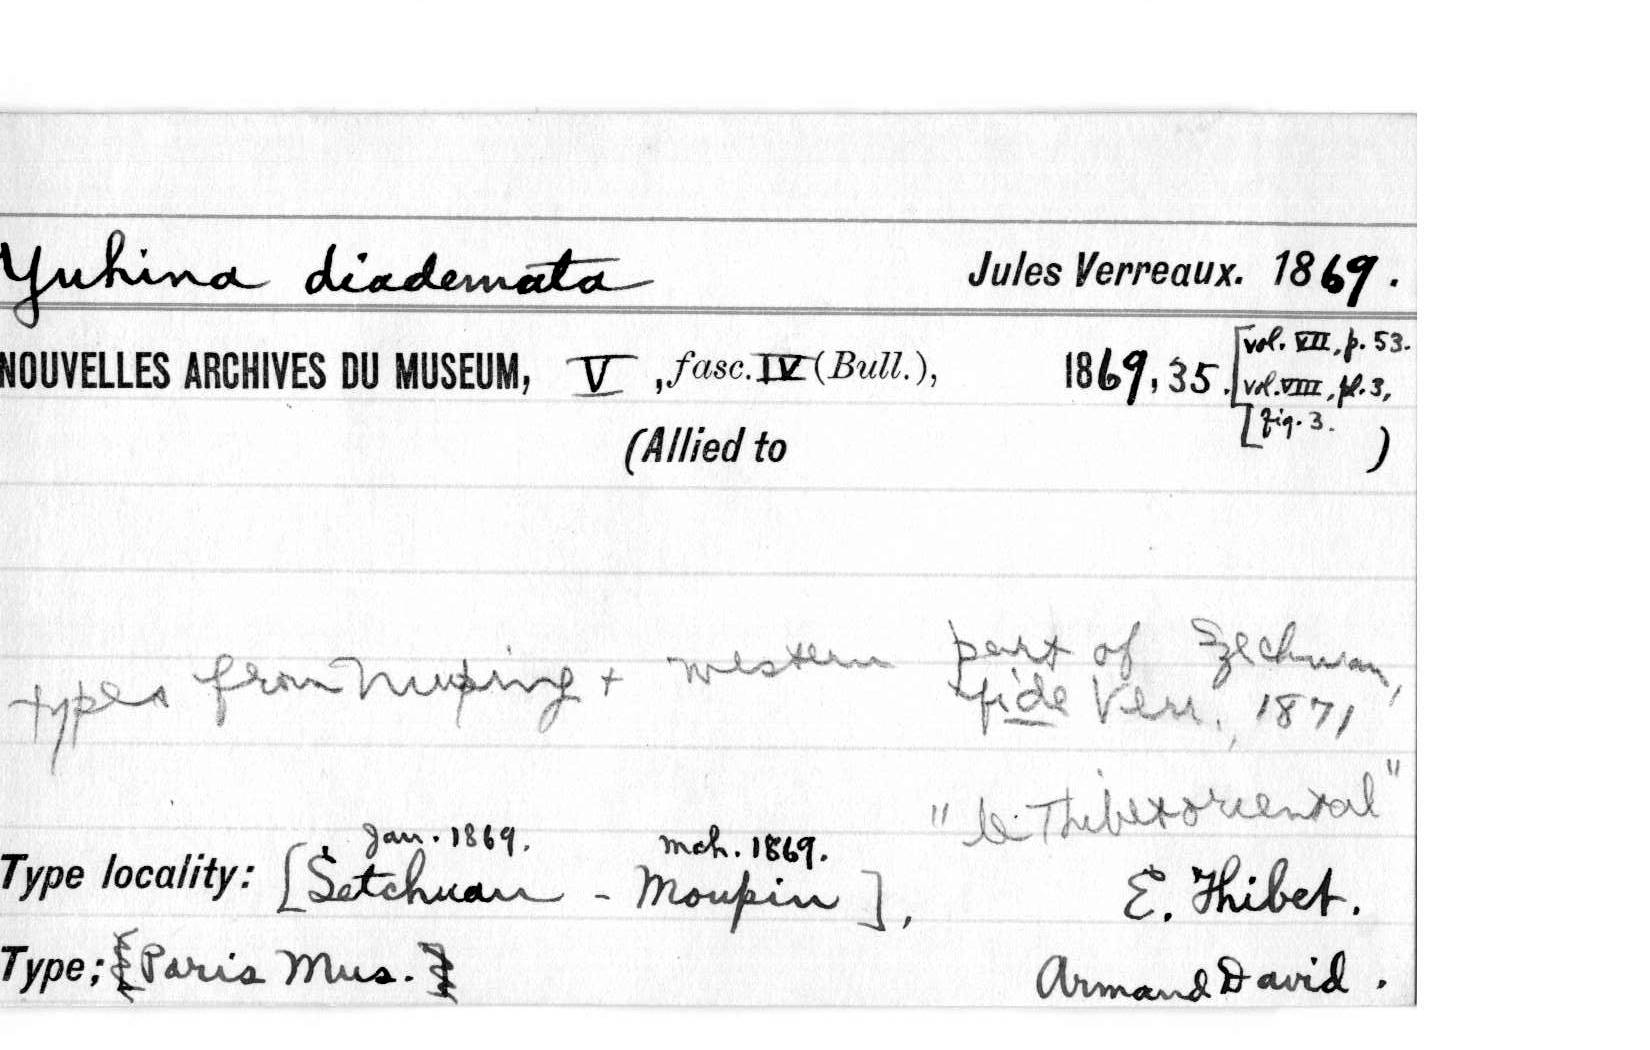 Yuhina diademata Jules Verreaux. 1869.
NOUVELLES ARCHIVES DU MUSEUM, V, fasc. IV (Bull.), 1869, 35. [vol. VII, p. 53.
vol. VIII, pl. 3,
[fig. 3.
(Allied to )
types from Muping + western part of Szechwan,
fide Verr., 1871
"le Thibet oriental"
Jan. 1869. Mch. 1869.
Type locality: [Setchuan - Moupin], E. Thibet.
Type; [Paris Mus.] Armand David.